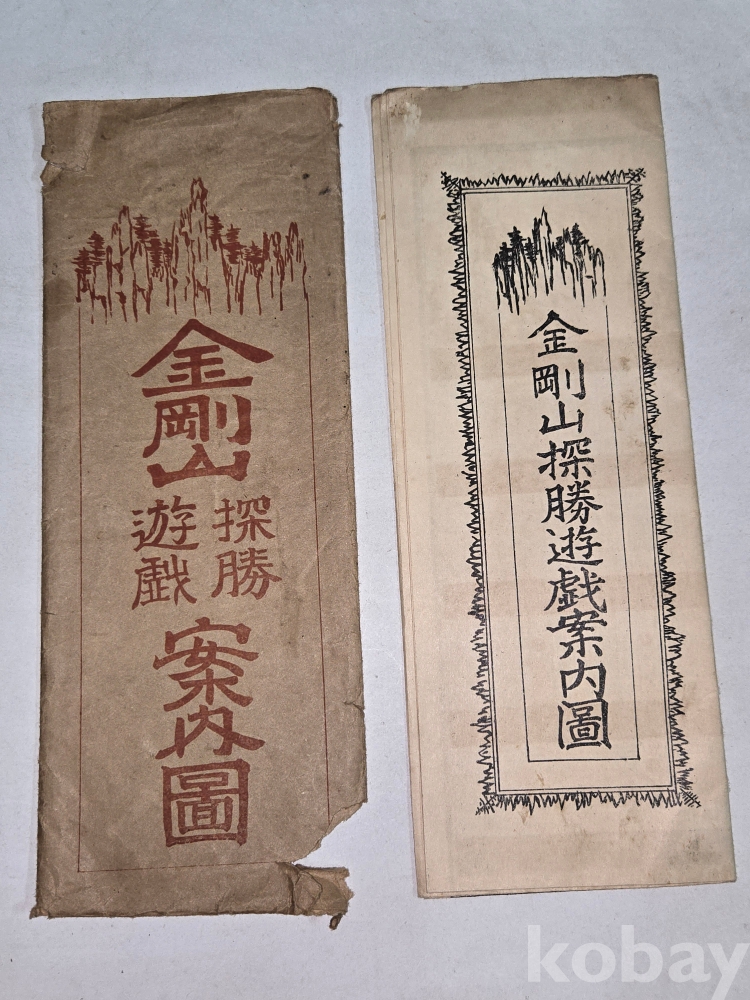 金剛山
探勝
遊戯
案内圖
金剛山探勝遊戯案内圖
kobay